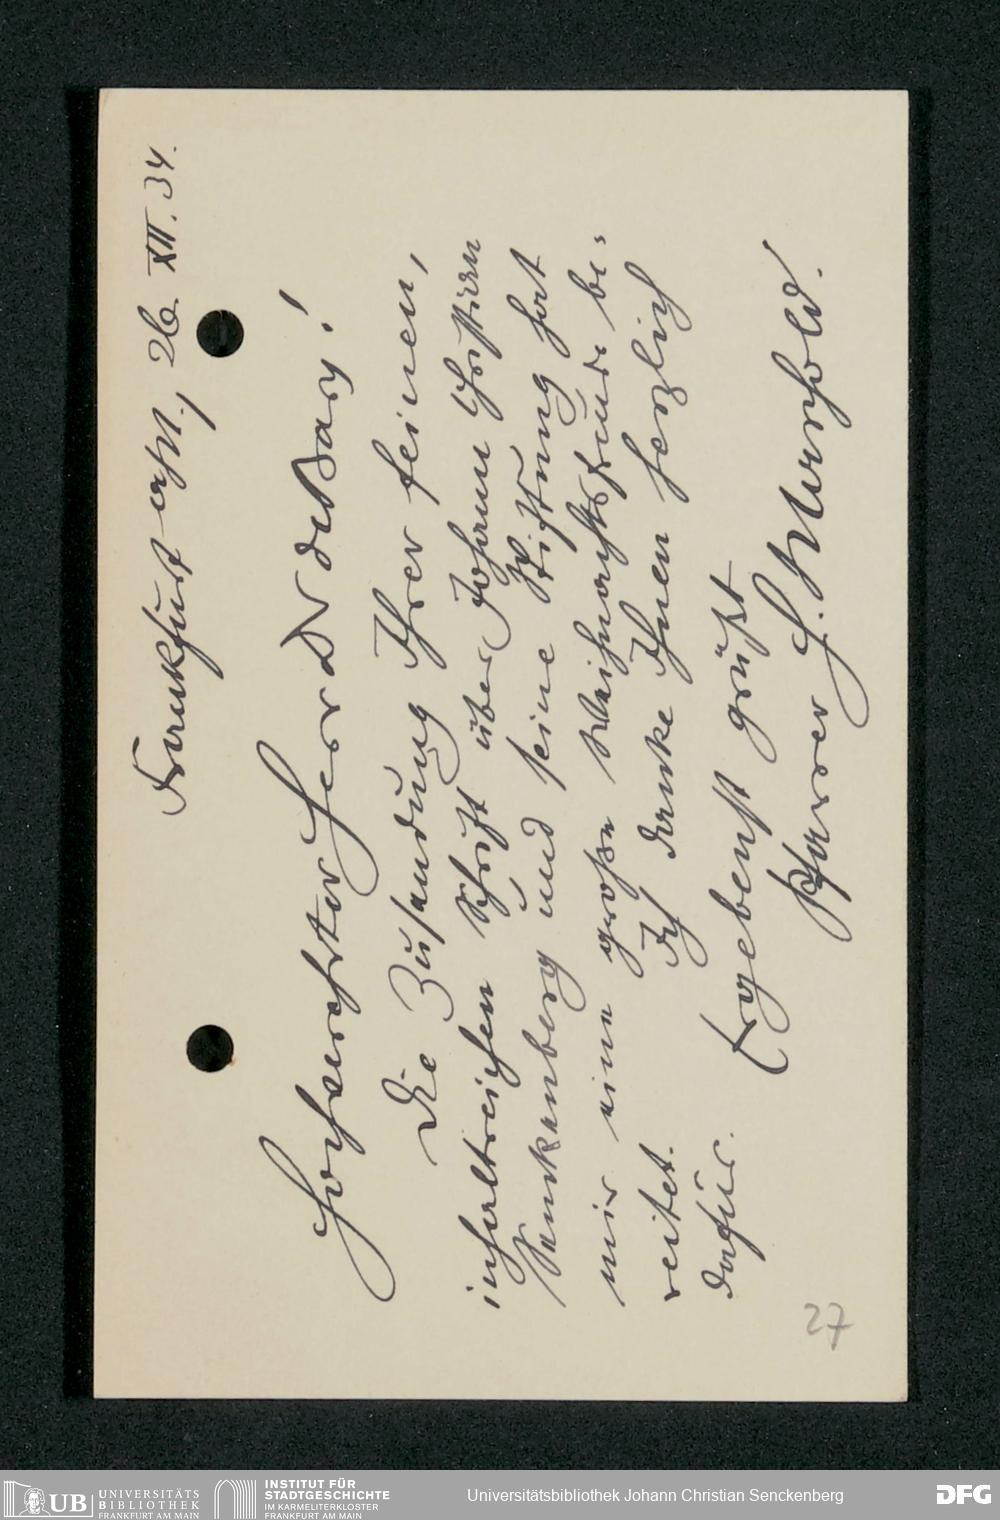 Frankfurt a/M., 26. XII. 34.
Hochverehrter Herr Dr de Bary!
Die Zusendung Ihrer feinen,
inhaltreichen Schrift über Johann Christian
Senckenberg und seine Stiftung hat
mir eine große Weihnachtsfreude be-
reitet. Ich danke Ihnen herzlich
dafür.
Ergebenst grüßt
Pfarrer H. Marhold.
27
UB
UNIVERSITÄTS
BIBLIOTHEK
FRANKFURT AM MAIN
INSTITUT FÜR
STADTGESCHICHTE
IM KARMELITERKLOSTER
FRANKFURT AM MAIN
Universitätsbibliothek Johann Christian Senckenberg
DFG